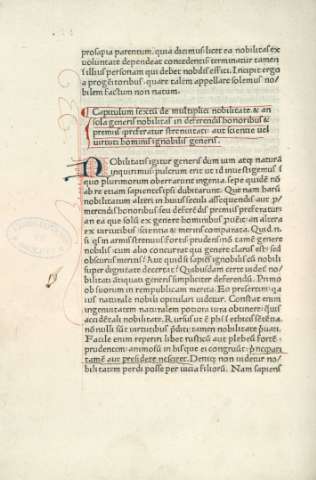 prosapia parentum. qua diximus licet ea nobilitas ex
voluntate dependeat concedentis terminatur tamen
i illius personam qui debet nobilis effici. Incipit ergo
a progēitoribus. quare talem appellare solemus no/
bilem factum non natum.
Capitulum sextū de multiplici nobilitate. & an
sola generis nobilitas in deferendis honoribus &
premiis preferatur strenuitati aut scientie vel
virtuti hominis ignobilis generis.
Nobilitatis igitur generis dum vim atqʒ naturā
inquirimus. pulcrum erit ut id investigemus
quo plurimorum oberrarunt ingenia. sepe quidē nō
ab re etiam sapientes ipsi dubitarunt. Que nam harū
nobilitatum alteri in huius seculi assequendis aut
merendis honoribus seu deferēdis premiis preferatur
an ea que solū ex genere hominibus puēit. an altera
ex virtutibus scientia & meritis comparata. Quid. n.
si qs in armis strenuus fortis prudens nō tamē generē
nobilis cum alio concurrat qui genere clarus est. sed
obscurus meritis? Aut quid si sapiēs ignobilis cū nobili
super dignitate decertat? Quibusdam certe videt no/
bilitati atiquati generis simpliciter deferendū. Primo
ob suorum in rempublicam merita. Eo presertim. qa
ius naturale nobilis opitulari videtur. Constat enim
ingenuitatem naturalem potiora iura obtinere.
accidētali nobilitate. Rursus ut ē phi. i. ethicis sētētia.
nō nulli sūt virtutibus pditi. tamen nobilitate
Facile enim reperiri libet rusticū aut plebeiū fortē.
prudentem. animosū in hisque ei congruūt.
tamē aut presidere nesciret. Deniqʒ non videtur no/
bilitatem perdi posse per vicia filiorū. Nam sapiens